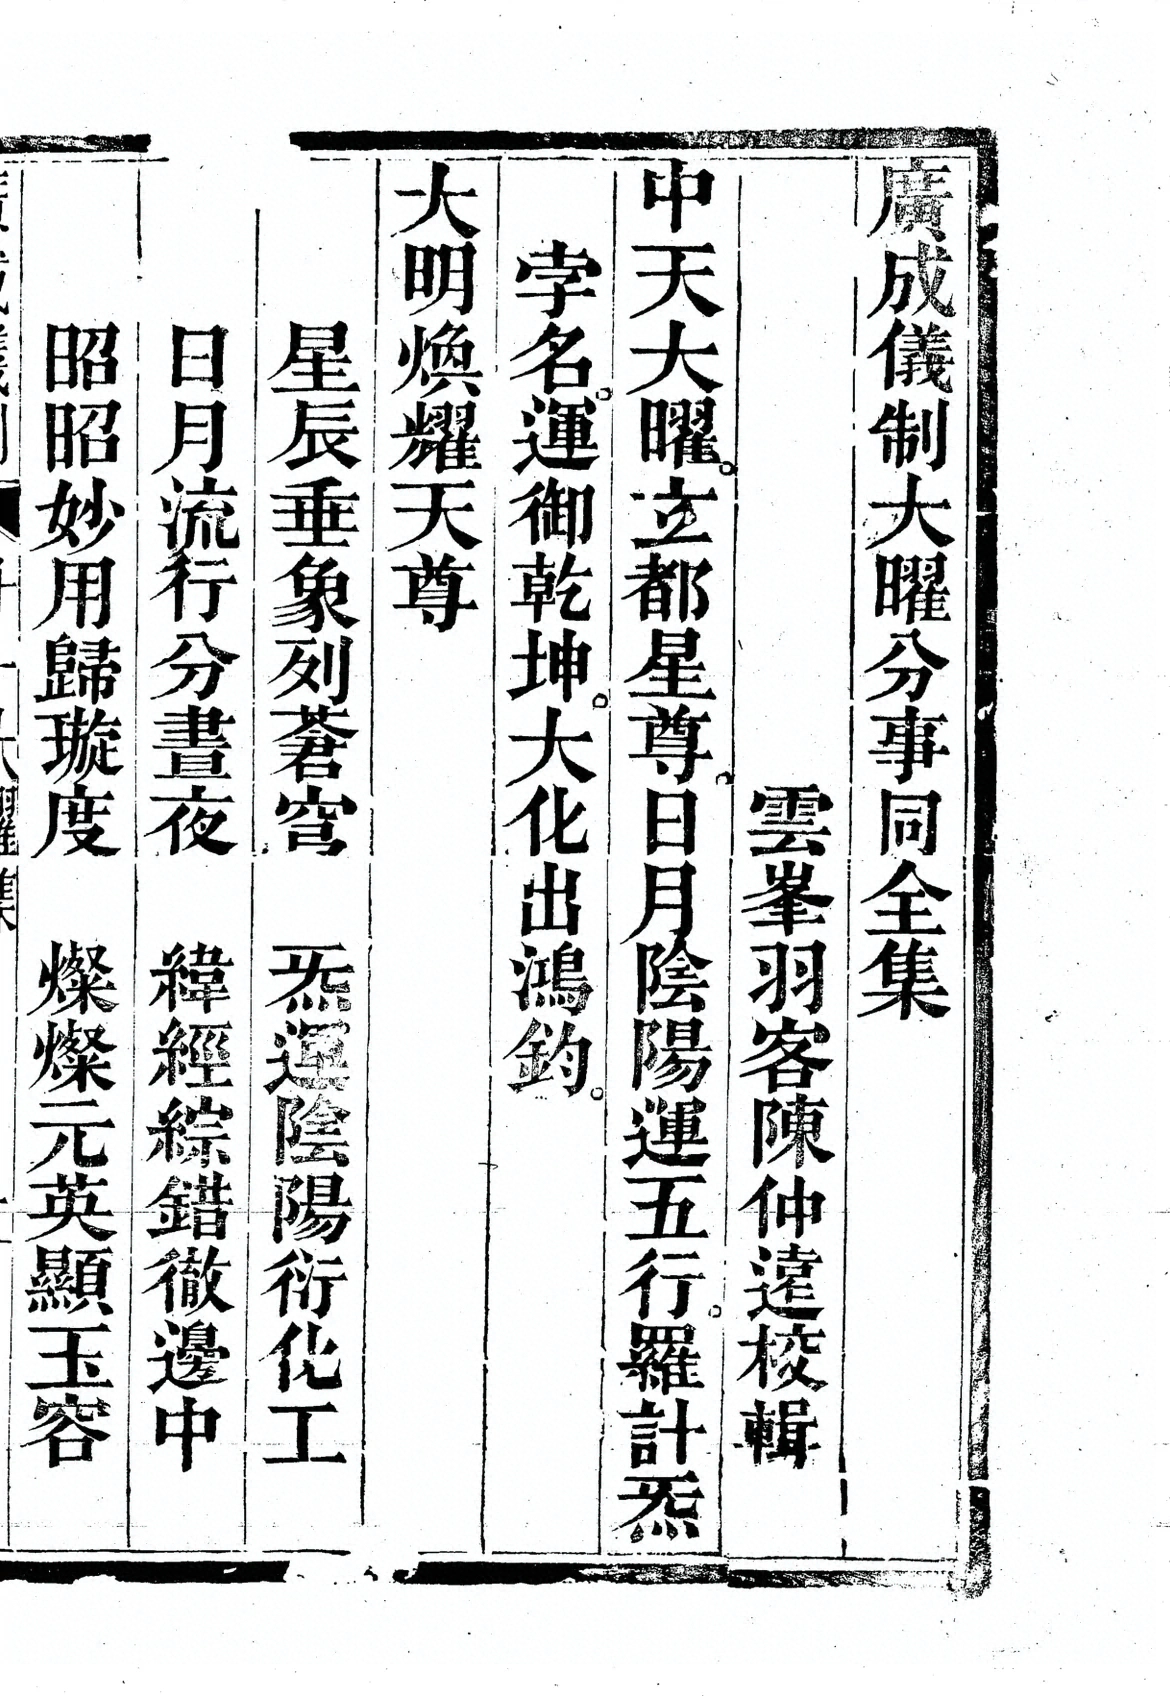 廣成儀制大曜分事同全集
雲峯羽客陳仲遠校輯
中天大曜。立都星尊。日月陰陽運五行。羅計炁
孛名。運御乾坤。大化出鴻鈞。
大明煥耀天尊
星辰垂象列蒼穹　炁運陰陽衍化工
日月流行分晝夜　緯經綜錯徹邊中
昭昭妙用歸璇度　燦燦元英顯玉容